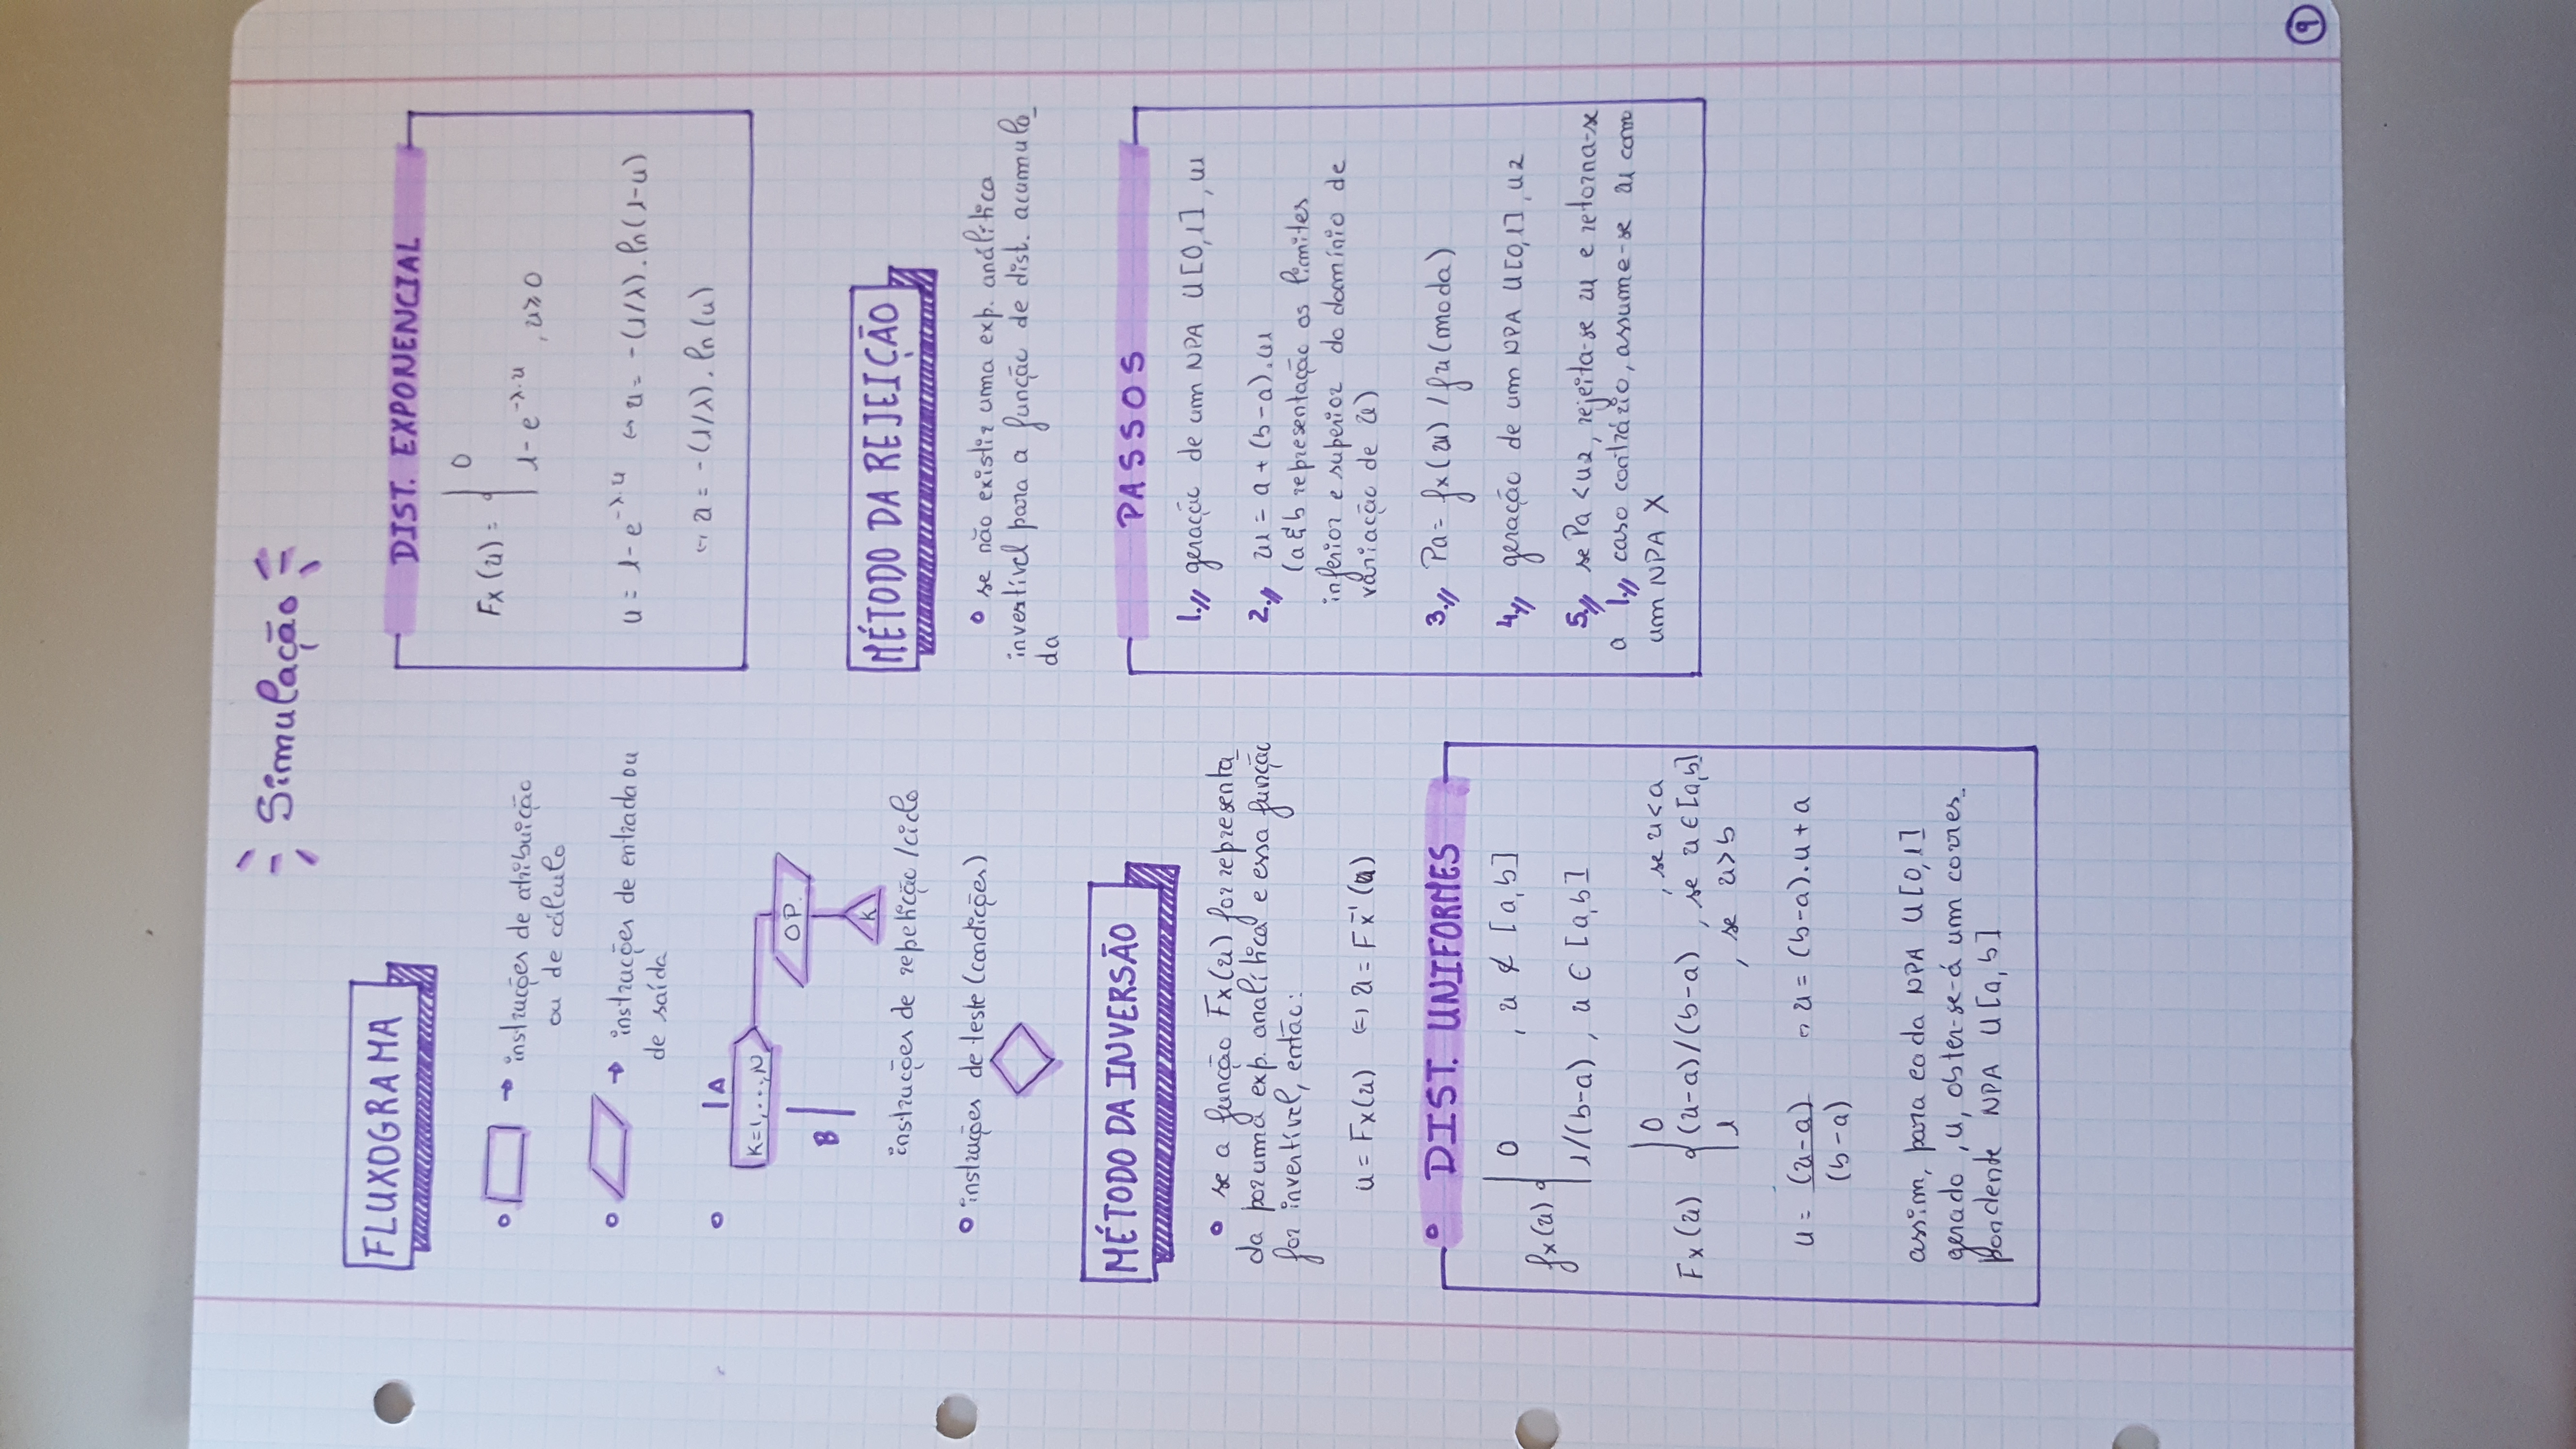 Simulação
FLUXOGRAMA
→ instruções de atribuição
ou de cálculo
→ instruções de entrada ou
de saída
A
K=1,...,N
OP.
B
K
instruções de repetição/ciclo
instruções de teste (condições)
MÉTODO DA INVERSÃO
se a função Fx(x) for representa_
da por uma exp. analítica e essa função
for invertível, então:
u = Fx(x) (=) x = Fx⁻¹(u)
DIST. UNIFORMES
fx(x) { 0 , x ∉ [a,b]
1/(b-a) , x ∈ [a,b]
Fx(x) { 0 , se x<a
(x-a)/(b-a) , se x ∈ [a,b]
1 , se x>b
u = (x-a)/(b-a) ⇔ x = (b-a).u+a
assim, para cada NPA U[0,1]
gerado, u, obter-se-á um corres_
pondente NPA U[a,b]
DIST. EXPONENCIAL
Fx(x) = { 0
1-e^-λ.x , x≥0
u = 1-e^-λ.x ⇔ x = -(1/λ).ln(1-u)
⇔ x = -(1/λ).ln(u)
MÉTODO DA REJEIÇÃO
se não existir uma exp. análitica
invertível para a função de dist. acumula_
da
PASSOS
1.// geração de um NPA U[0,1], u1
2.// x1 = a+(b-a).u1
(a & b representação os limites
inferior e superior do domínio de
variação de x)
3.// Pa = fx(x1)/fx(moda)
4.// geração de um NPA U[0,1], u2
5.// se Pa<u2, rejeita-se x1 e retorna-se
a 1.// caso contrário, assume-se x1 com
um NPA X
9